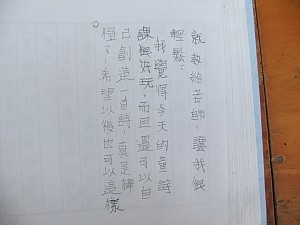 就教給老師讓我很
輕鬆。
我覺得今天的童詩
課很好玩,而且還可以自
己創造一首詩,真是棒
極了!希望以後也可以這樣
。